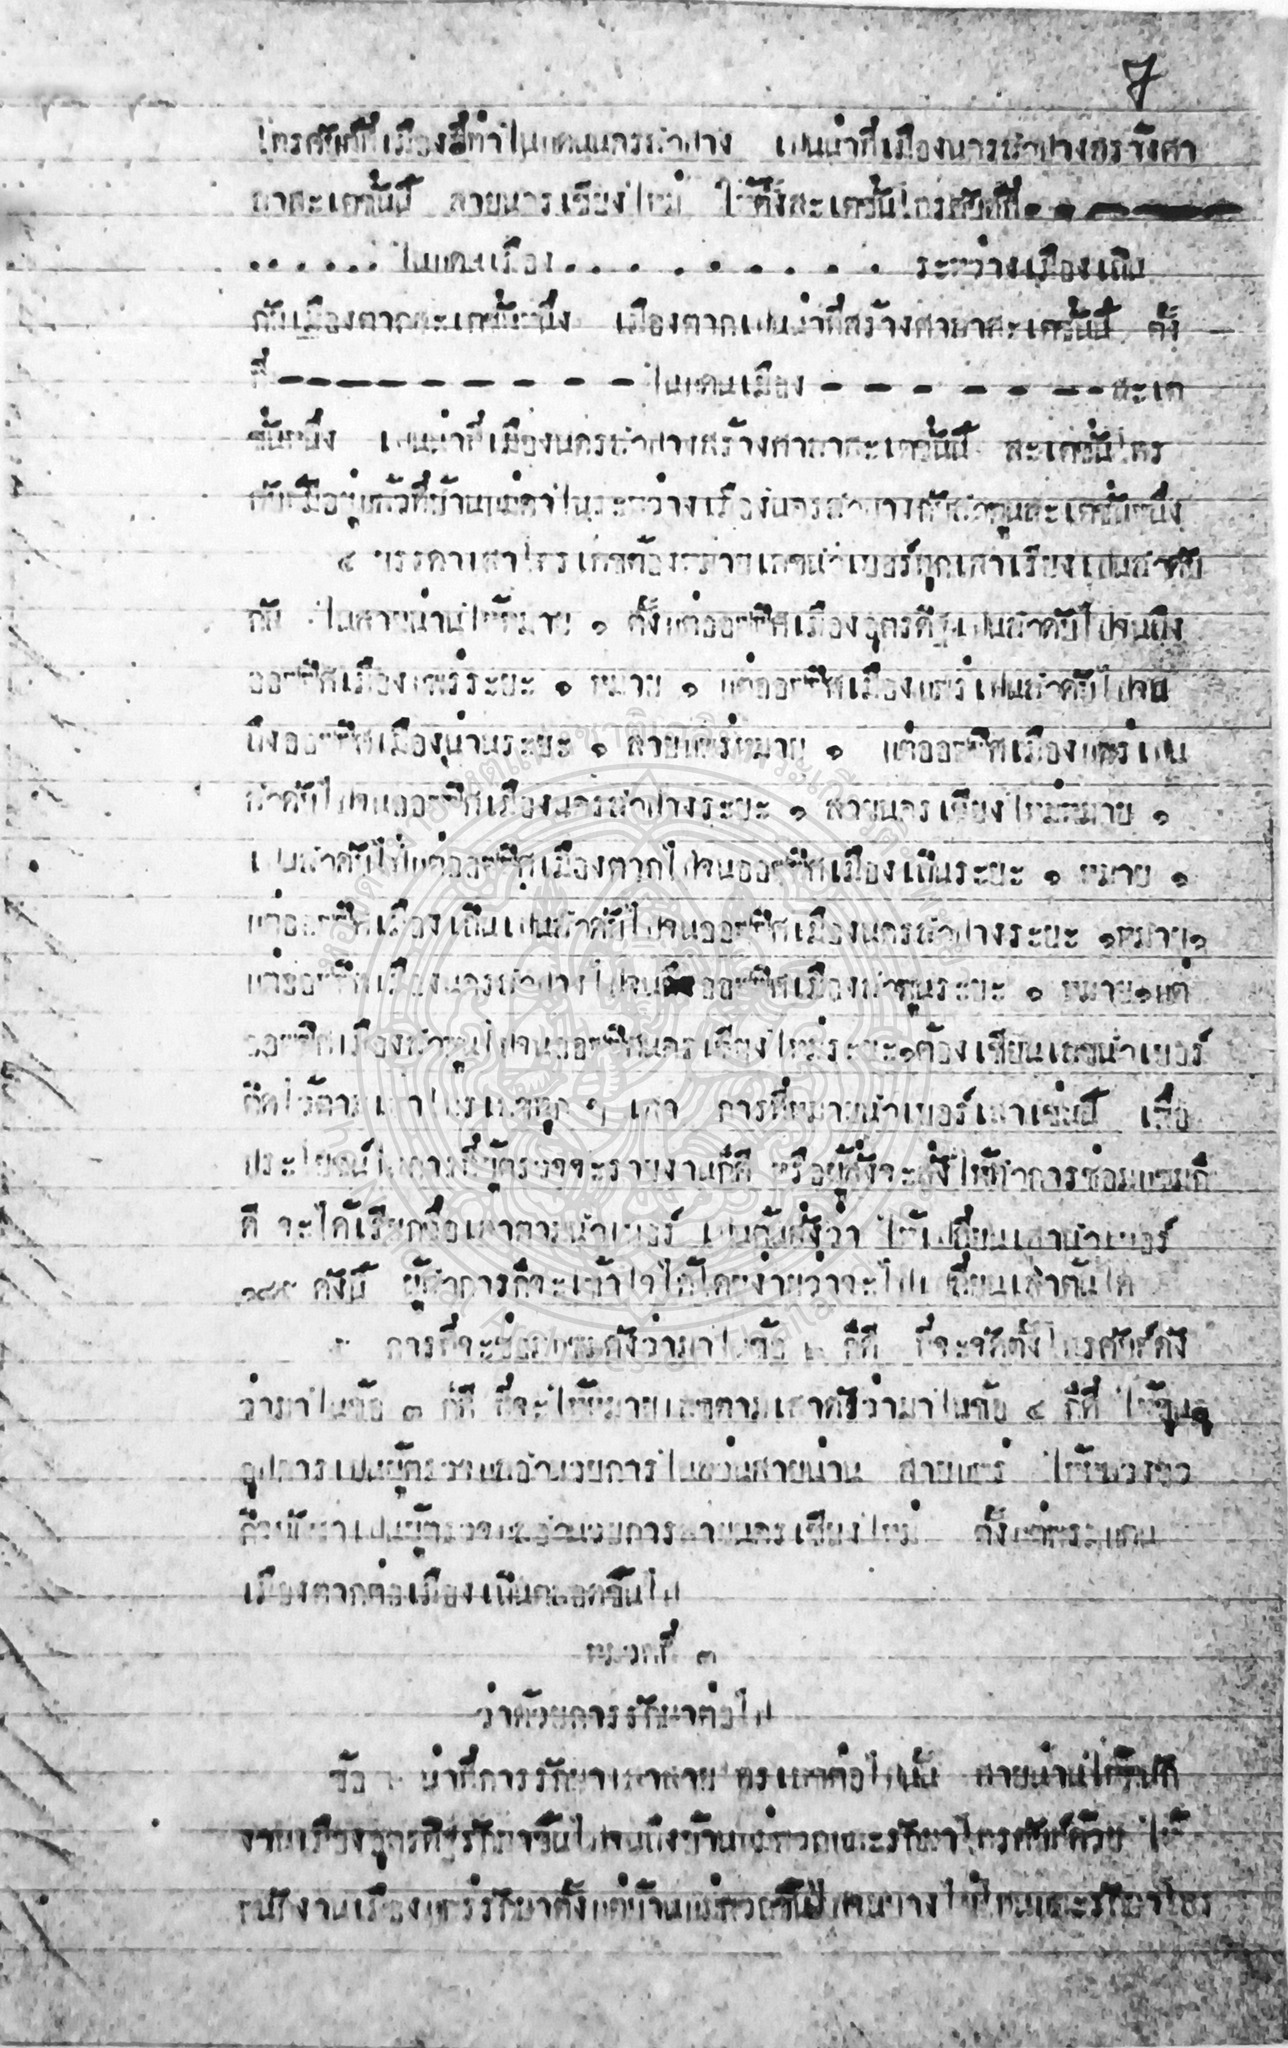 7
โทรศัพท์ที่เมืองสี่ทำในแดนนครลำปาง เปนน่าที่เมืองนครลำปางสร้างศา
ลาสะเตชั่นนี้ สายนครเชียงใหม่ ให้ตั้งสะเตชั่นโทรศัพท์ที่
...... ในแดนเมือง .......... ระหว่างเมืองเถิน
กับเมืองตากสะเตชั่นหนึ่ง เมืองตากเปนน่าที่สร้างศาลาสะเตชั่นนี้ ตั้ง
ที่ --------- ในแดนเมือง ------- สะเต
ชั่นหนึ่ง เปนน่าที่เมืองนครลำปางสร้างศาลาสะเตชั่นนี้ สะเตชั่นโทร
ศัพมีอยู่แล้วที่บ้านแม่ ในระหว่างเมืองนครลำปางกับลำพูนสะเตชั่นหนึ่ง
๔ บรรดาเสาโทรเลขต้องหมายเลขนำเบอร์ทุกเสาเรียงเปนลำดับ
กัน ในสายน่านให้หมาย ๑ ตั้งแต่ออฟฟิศเมืองอุตรดิฐเปนลำดับไปจนถึง
ออฟฟิศเมืองแพร่ระยะ ๑ หมาย ๑ แต่ออฟฟิศเมืองแพร่เปนลำดับไปจน
ถึงออฟฟิศเมืองน่านระยะ ๑ สายแพร่หมาย ๑ แต่ออฟฟิศเมืองแพร่เปน
ลำดับไปจนออฟฟิศเมืองนครลำปางระยะ ๑ สายนครเชียงใหม่หมาย ๑
เปนลำดับไปแต่ออฟฟิศเมืองตากไปจนออฟฟิศเมืองเถินระยะ ๑ หมาย ๑
แต่ออฟฟิศเมืองเถินเปนลำดับไปจนออฟฟิศเมืองนครลำปางระยะ ๑หมาย๑
แต่ออฟฟิศเมืองนครลำปางไปจนถึงออฟฟิศเมืองลำพูนระยะ ๑ หมาย๑แต่
ออฟฟิศเมืองลำพูนไปจนออฟฟิศนครเชียงใหม่ระยะ๑ต้องเขียนเลขนำเบอร์
ติดไว้ตามเสาโทรเลขทุก ๆ เสา การที่หมายนำเบอร์เสาเช่นนี้ เพื่อ
ประโยชน์ในการที่ผู้ตรวจจะรายงานก็ดี หรือผู้สั่งจะสั่งให้ทำการซ่อมแซมก็
ดี จะได้เรียกชื่อเสาตามนำเบอร์ เปนต้นสั่งว่า ให้เปลี่ยนเสานำเบอร์
ดังนี้ ผู้ทำการก็จะเข้าใจได้โดยง่ายว่าจะไปเปลี่ยนเสาต้นใด
การที่จะซ่อมแซมดังว่ามาในข้อ ก็ดี ที่จะจัดตั้งโทรศัพท์ดัง
ว่ามาในข้อ ๓ ก็ดี ที่จะให้หมายเลขตามเสาดังว่ามาในข้อ ๔ ก็ดี ให้ขุน
อุปการเปนผู้ตรวจแลอำนวยการในส่วนสายน่าน สายแพร่ ให้หลวง
เปนผู้ตรวจแลอำนวยการสายนครเชียงใหม่ ตั้งแต่พระแดน
เมืองตากต่อเมืองเถินตลอดขึ้นไป
หมวดที่ ๓
ว่าด้วยการรักษาต่อไป
ข้อ น่าที่การรักษาเสาสายโทรเลขต่อไปนั้น สายน่านให้พนัก
งานเมืองอุตรดิฐรักษาขึ้นไปจนถึงบ้านแม่พวกแลรักษาโทรศัพท์ด้วย ให้
พนักงานเมืองแพร่รักษาตั้งแต่บ้านแม่พวกขึ้นไป แลรักษาโทร